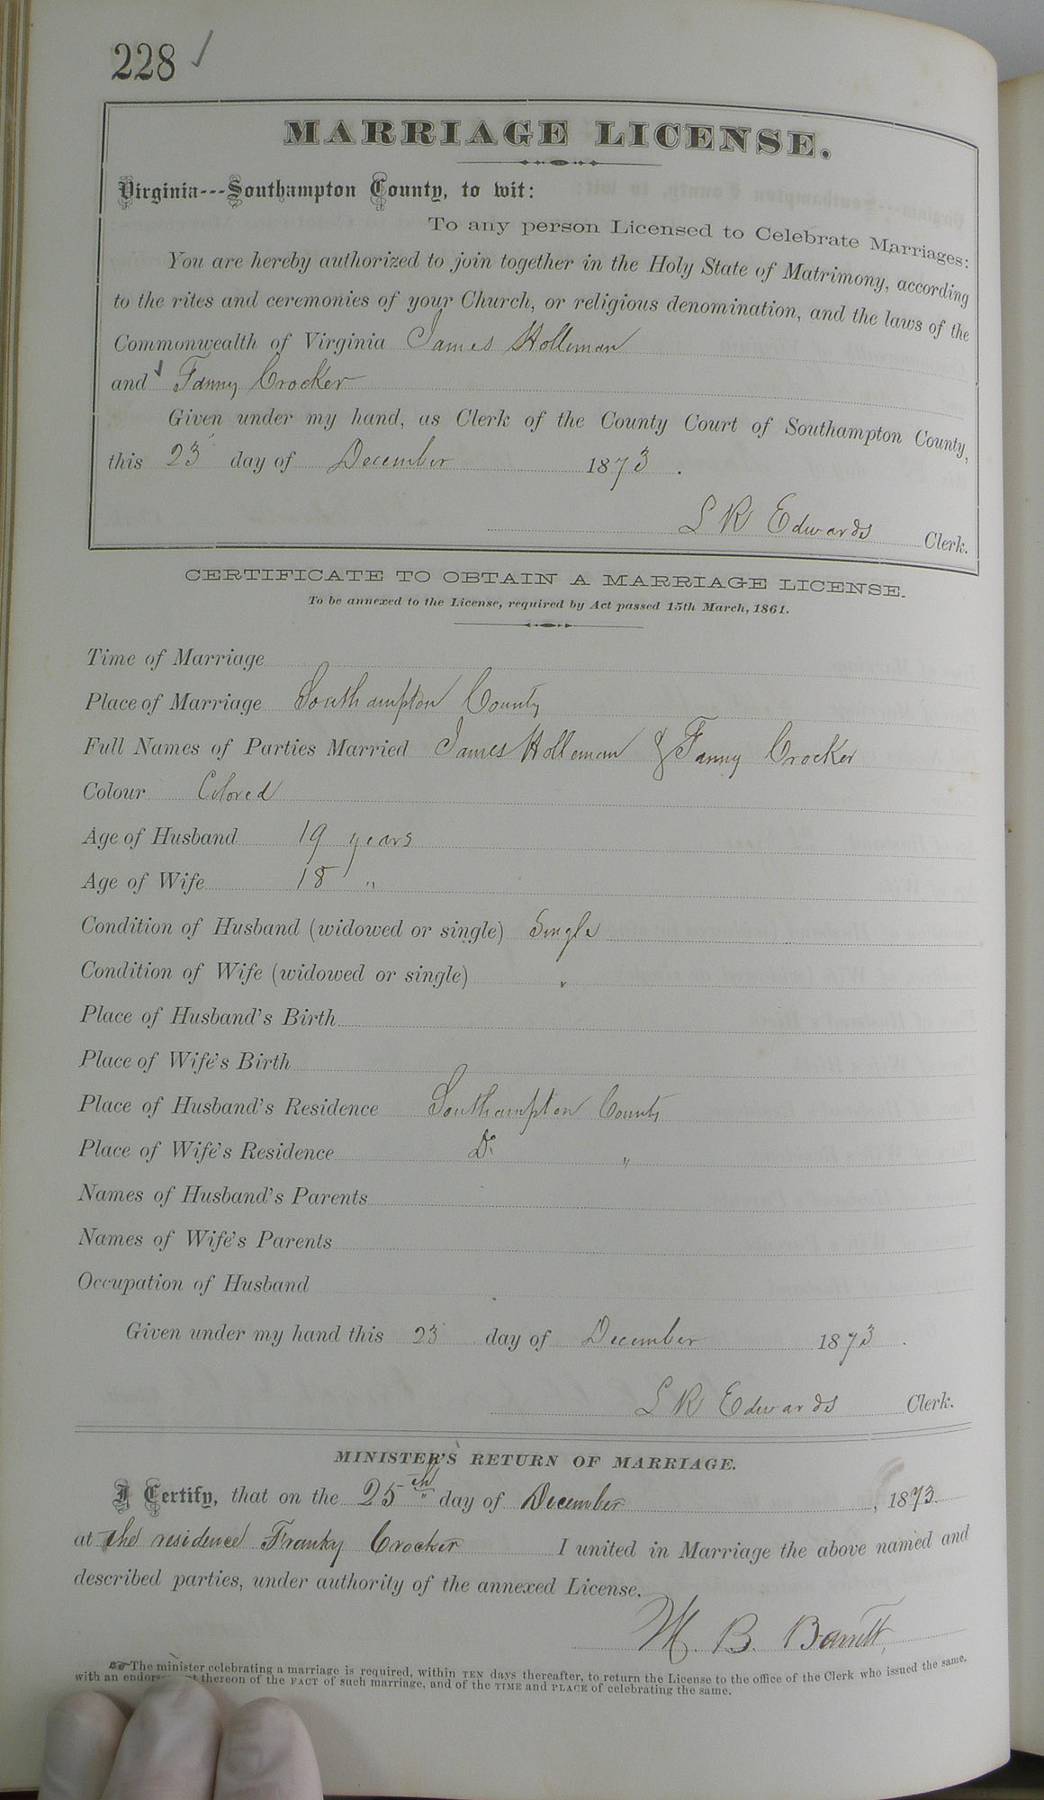 228 ✓
MARRIAGE LICENSE.
Virginia---Southampton County, to wit:
To any person Licensed to Celebrate Marriages:
You are hereby authorized to join together in the Holy State of Matrimony, according
to the rites and ceremonies of your Church, or religious denomination, and the laws of the
Commonwealth of Virginia James Holleman
and ✓ Fanny Crocker
Given under my hand, as Clerk of the County Court of Southampton County,
this 23 day of December 1873.
L R Edwards Clerk.
CERTIFICATE TO OBTAIN A MARRIAGE LICENSE.
To be annexed to the License, required by Act passed 15th March, 1861.
Time of Marriage
Place of Marriage Southampton County
Full Names of Parties Married James Holleman & Fanny Crocker
Colour Colored
Age of Husband 19 years
Age of Wife 18 "
Condition of Husband (widowed or single) Single
Condition of Wife (widowed or single) "
Place of Husband's Birth
Place of Wife's Birth
Place of Husband's Residence Southampton County
Place of Wife's Residence Do "
Names of Husband's Parents
Names of Wife's Parents
Occupation of Husband
Given under my hand this 23 day of December 1873.
L R Edwards Clerk.
MINISTER'S RETURN OF MARRIAGE.
I Certify, that on the 25th day of December, 1873
at the residence Franky Crocker I united in Marriage the above named and
described parties, under authority of the annexed License.
M. B. Barrett,
☞ The minister celebrating a marriage is required, within TEN days thereafter, to return the License to the office of the Clerk who issued the same,
with an thereon of the FACT of such marriage, and of the TIME and PLACE of celebrating the same.